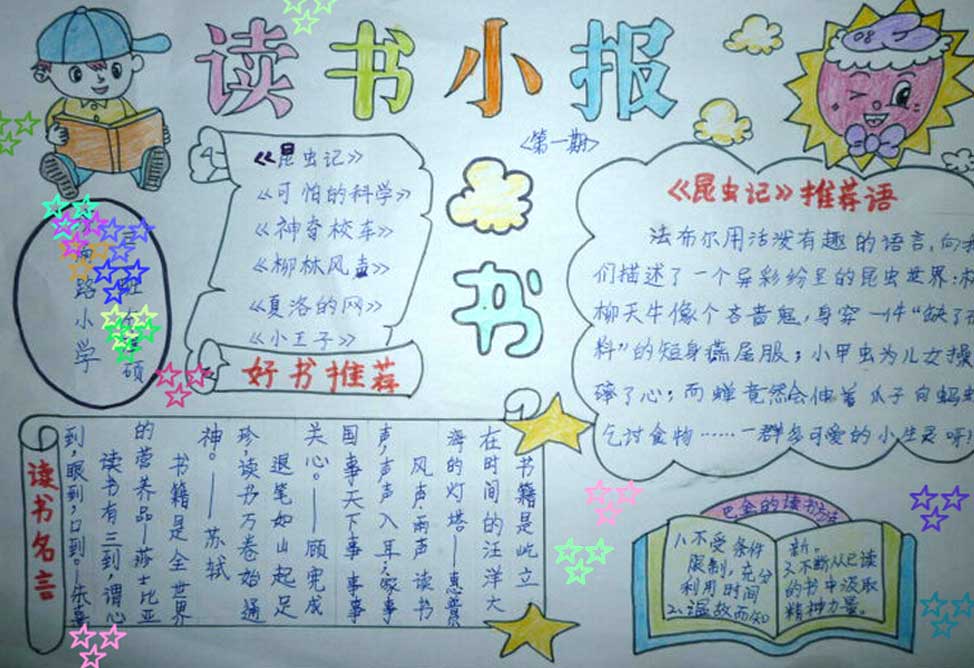 读书小报
《第一期》
《昆虫记》
《可怕的科学》
《神奇校车》
《柳林风声》
《夏洛的网》
《小王子》
好书推荐
书
路小学
硕
《昆虫记》推荐语
法布尔用活泼有趣的语言,向
们描述了一个异彩纷呈的昆虫世界:
柳天牛像个吝啬鬼,身穿一件“缺了
料”的短身燕尾服;小甲虫为儿女操
碎了心;而蝉竟然会伸着爪子向蚂
乞讨食物……一群多可爱的小生灵呀
读书名言
书籍是屹立
在时间的汪洋大
海的灯塔。——惠普
风声雨声读书
声,声声入耳;家事
国事天下事事事
关心。——顾宪成
退笔如山起足
珍,读书万卷始通
神。——苏轼
书籍是全世界
的营养品—莎士比亚
读书有三到,谓心
到,眼到,口到。—朱熹
巴金的读书方法
1、不受条件
限制,充分
利用时间
2、温故而知
新。
3、不断从已读
的书中汲取
精神力量。